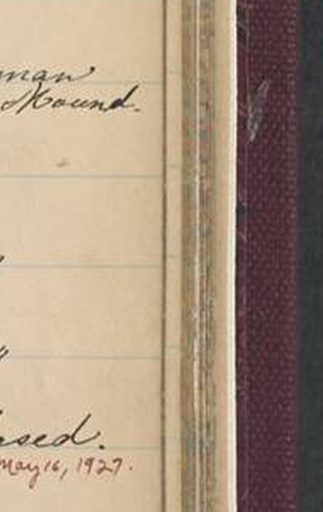 man
Mound.
"
"
sed.
May 16, 1927.